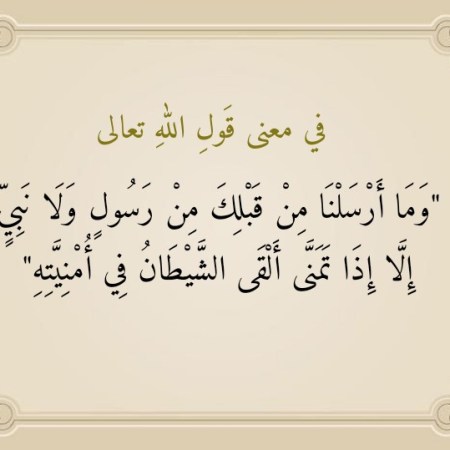 في معنى قَولِ اللهِ تعالى
"وَمَا أَرْسَلْنَا مِنْ قَبْلِكَ مِنْ رَسُولٍ وَلَا نَبِيٍّ
إِلَّا إِذَا تَمَنَّى أَلْقَى الشَّيْطَانُ فِي أُمْنِيَّتِهِ"